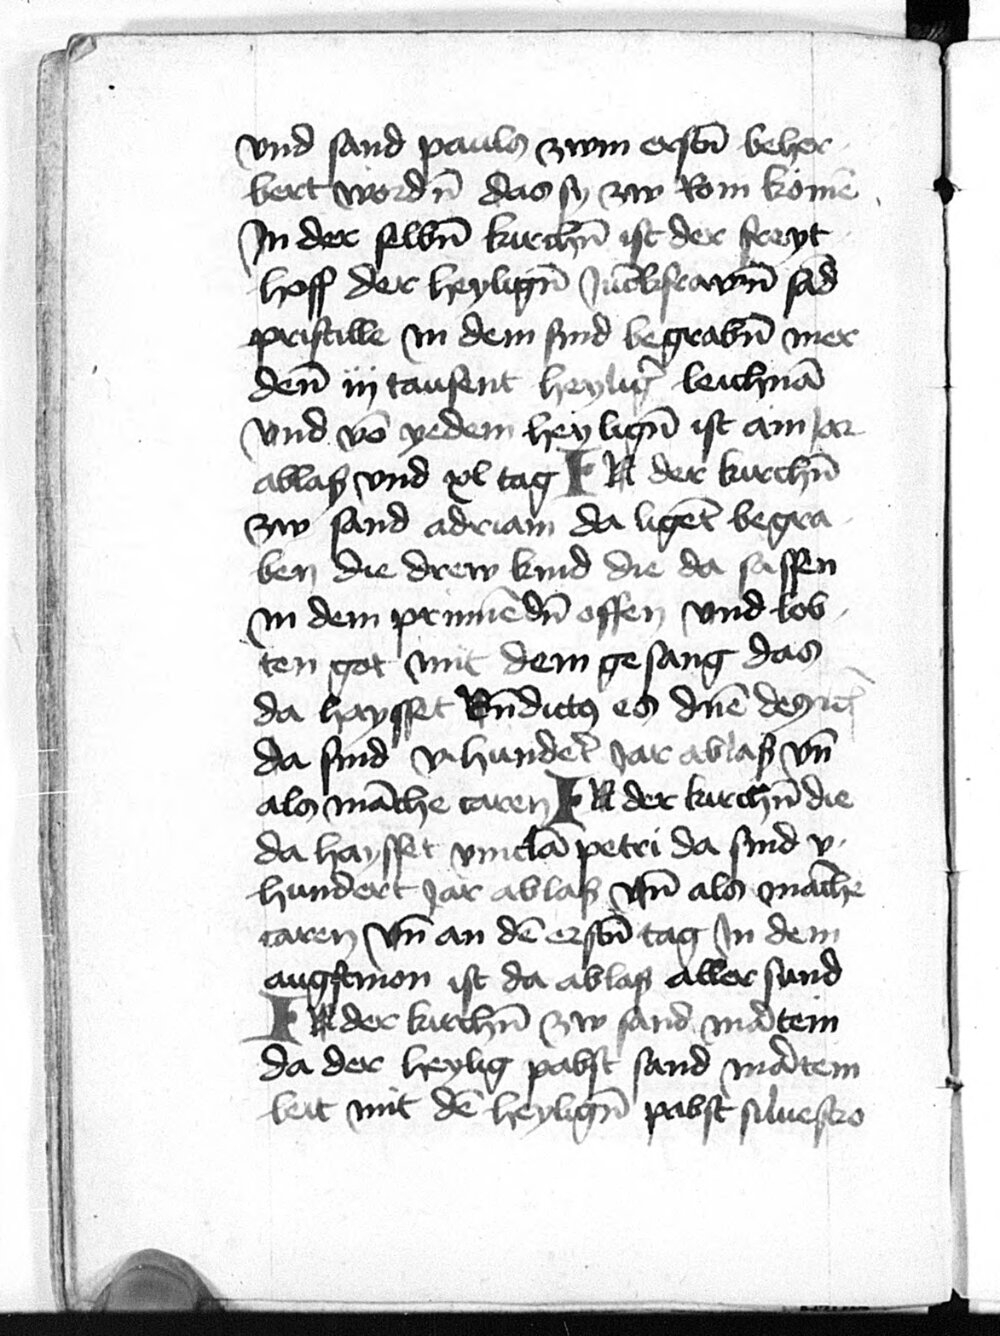 vnd sand paulo zwm erstn̄ beher
bert wordn̄ das sy zw Rom komē
In der selbn̄ kirchn̄ ist der freyt
hoff der heylign̄ Jūckfrawn̄ sād
pristille in dem sind begrabn̄ mer
den̄ iij tausent heylig̉ leichnā
vnd vō yedem heylign̄ ist ain Jar
ablaß vnd xl tag IN der kirchn̄
zw sand adriam da liget̄ begra
ben die drew kind die da sassen
in dem prinnēdn̄ offen vnd lob
ten got mit dem gesang das
da haysset Bn̄dictus es dn̄e
da sind v hundet̉ Jar ablaß vn̄
als māche caren IN der kirchn̄ die
da haysset vincl̄a petri da sind v
hundert Jar ablaß vn̄ als māche
caren vn̄ an dē erstn̄ tag In dem
augstmon ist da ablaß aller sund
IN der kirchn̄ zw sand mātein
da der heylig pabst sand mātein
leit mit dē heylign̄ pabst siluestro